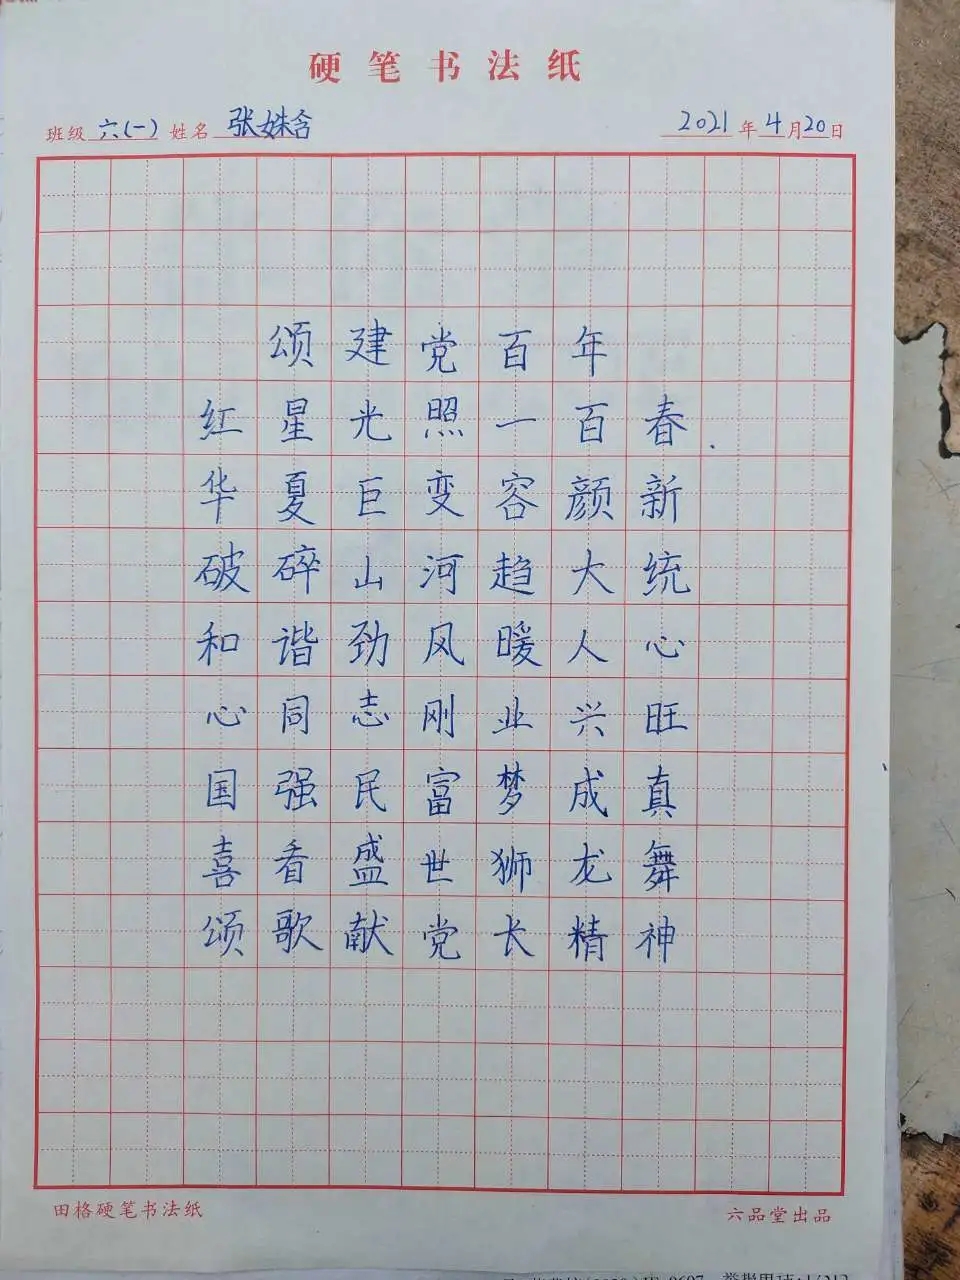 硬笔书法纸
班级 六(一) 姓名 张姝含 2021年4月20日
颂建党百年
红星光照一百春.
华夏巨变容颜新
破碎山河趋大统
和谐劲风暖人心
心同志刚业兴旺
国强民富梦成真
喜看盛世狮龙舞
颂歌献党长精神
田格硬笔书法纸 六品堂出品